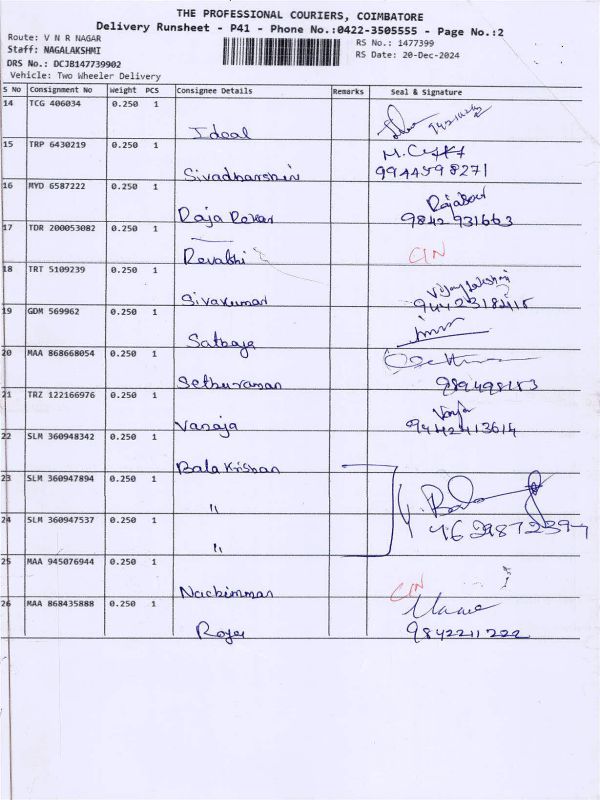 THE PROFESSIONAL COURIERS, COIMBATORE
Delivery Runsheet - P41 - Phone No.:0422-3505555 - Page No.:2
Route: V N R NAGAR
Staff: NAGALAKSHMI
DRS No.: DCJB147739902
Vehicle: Two Wheeler Delivery
RS No.: 1477399
RS Date: 20-Dec-2024
S No Consignment No Weight PCS Consignee Details Remarks Seal & Signature
14 TCG 406034 0.250 1
Ideal
15 TRP 6430219 0.250 1
Sivadharshin 9944598271
16 MYD 6587222 0.250 1
Raja 9842931663
17 TDR 200053082 0.250 1
Revathi CIN
18 TRT 5109239 0.250 1 Vijayalakshmi
Sivakumar
19 GDM 569962 0.250 1
Sathaja
20 MAA 868668054 0.250 1
Sethuraman
21 TRZ 122166976 0.250 1
Vanaja 9442413614
22 SLM 360948342 0.250 1
Bala Krishan
23 SLM 360947894 0.250 1
"
24 SLM 360947537 0.250 1
"
25 MAA 945076944 0.250 1
CIN
26 MAA 868435888 0.250 1
9842211222